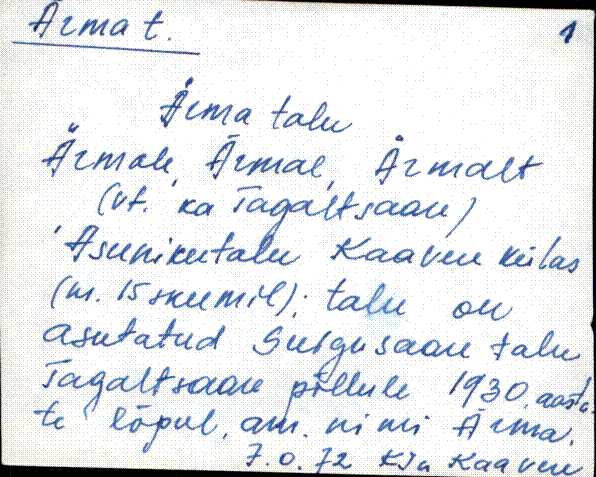 Ärma t. 1
Ärma talu
Ärmale, Ärmal, Ärmalt
(vt. ka Tagaltsaare)
Asunikutalu Kaavere külas
(nr. 15 skeemil); talu on
asutatud Surgusaare talu
Tagaltsaare põllule 1930. aasta-
te lõpul, am. nimi Ärma.
7. 0. 72 KJn Kaavere